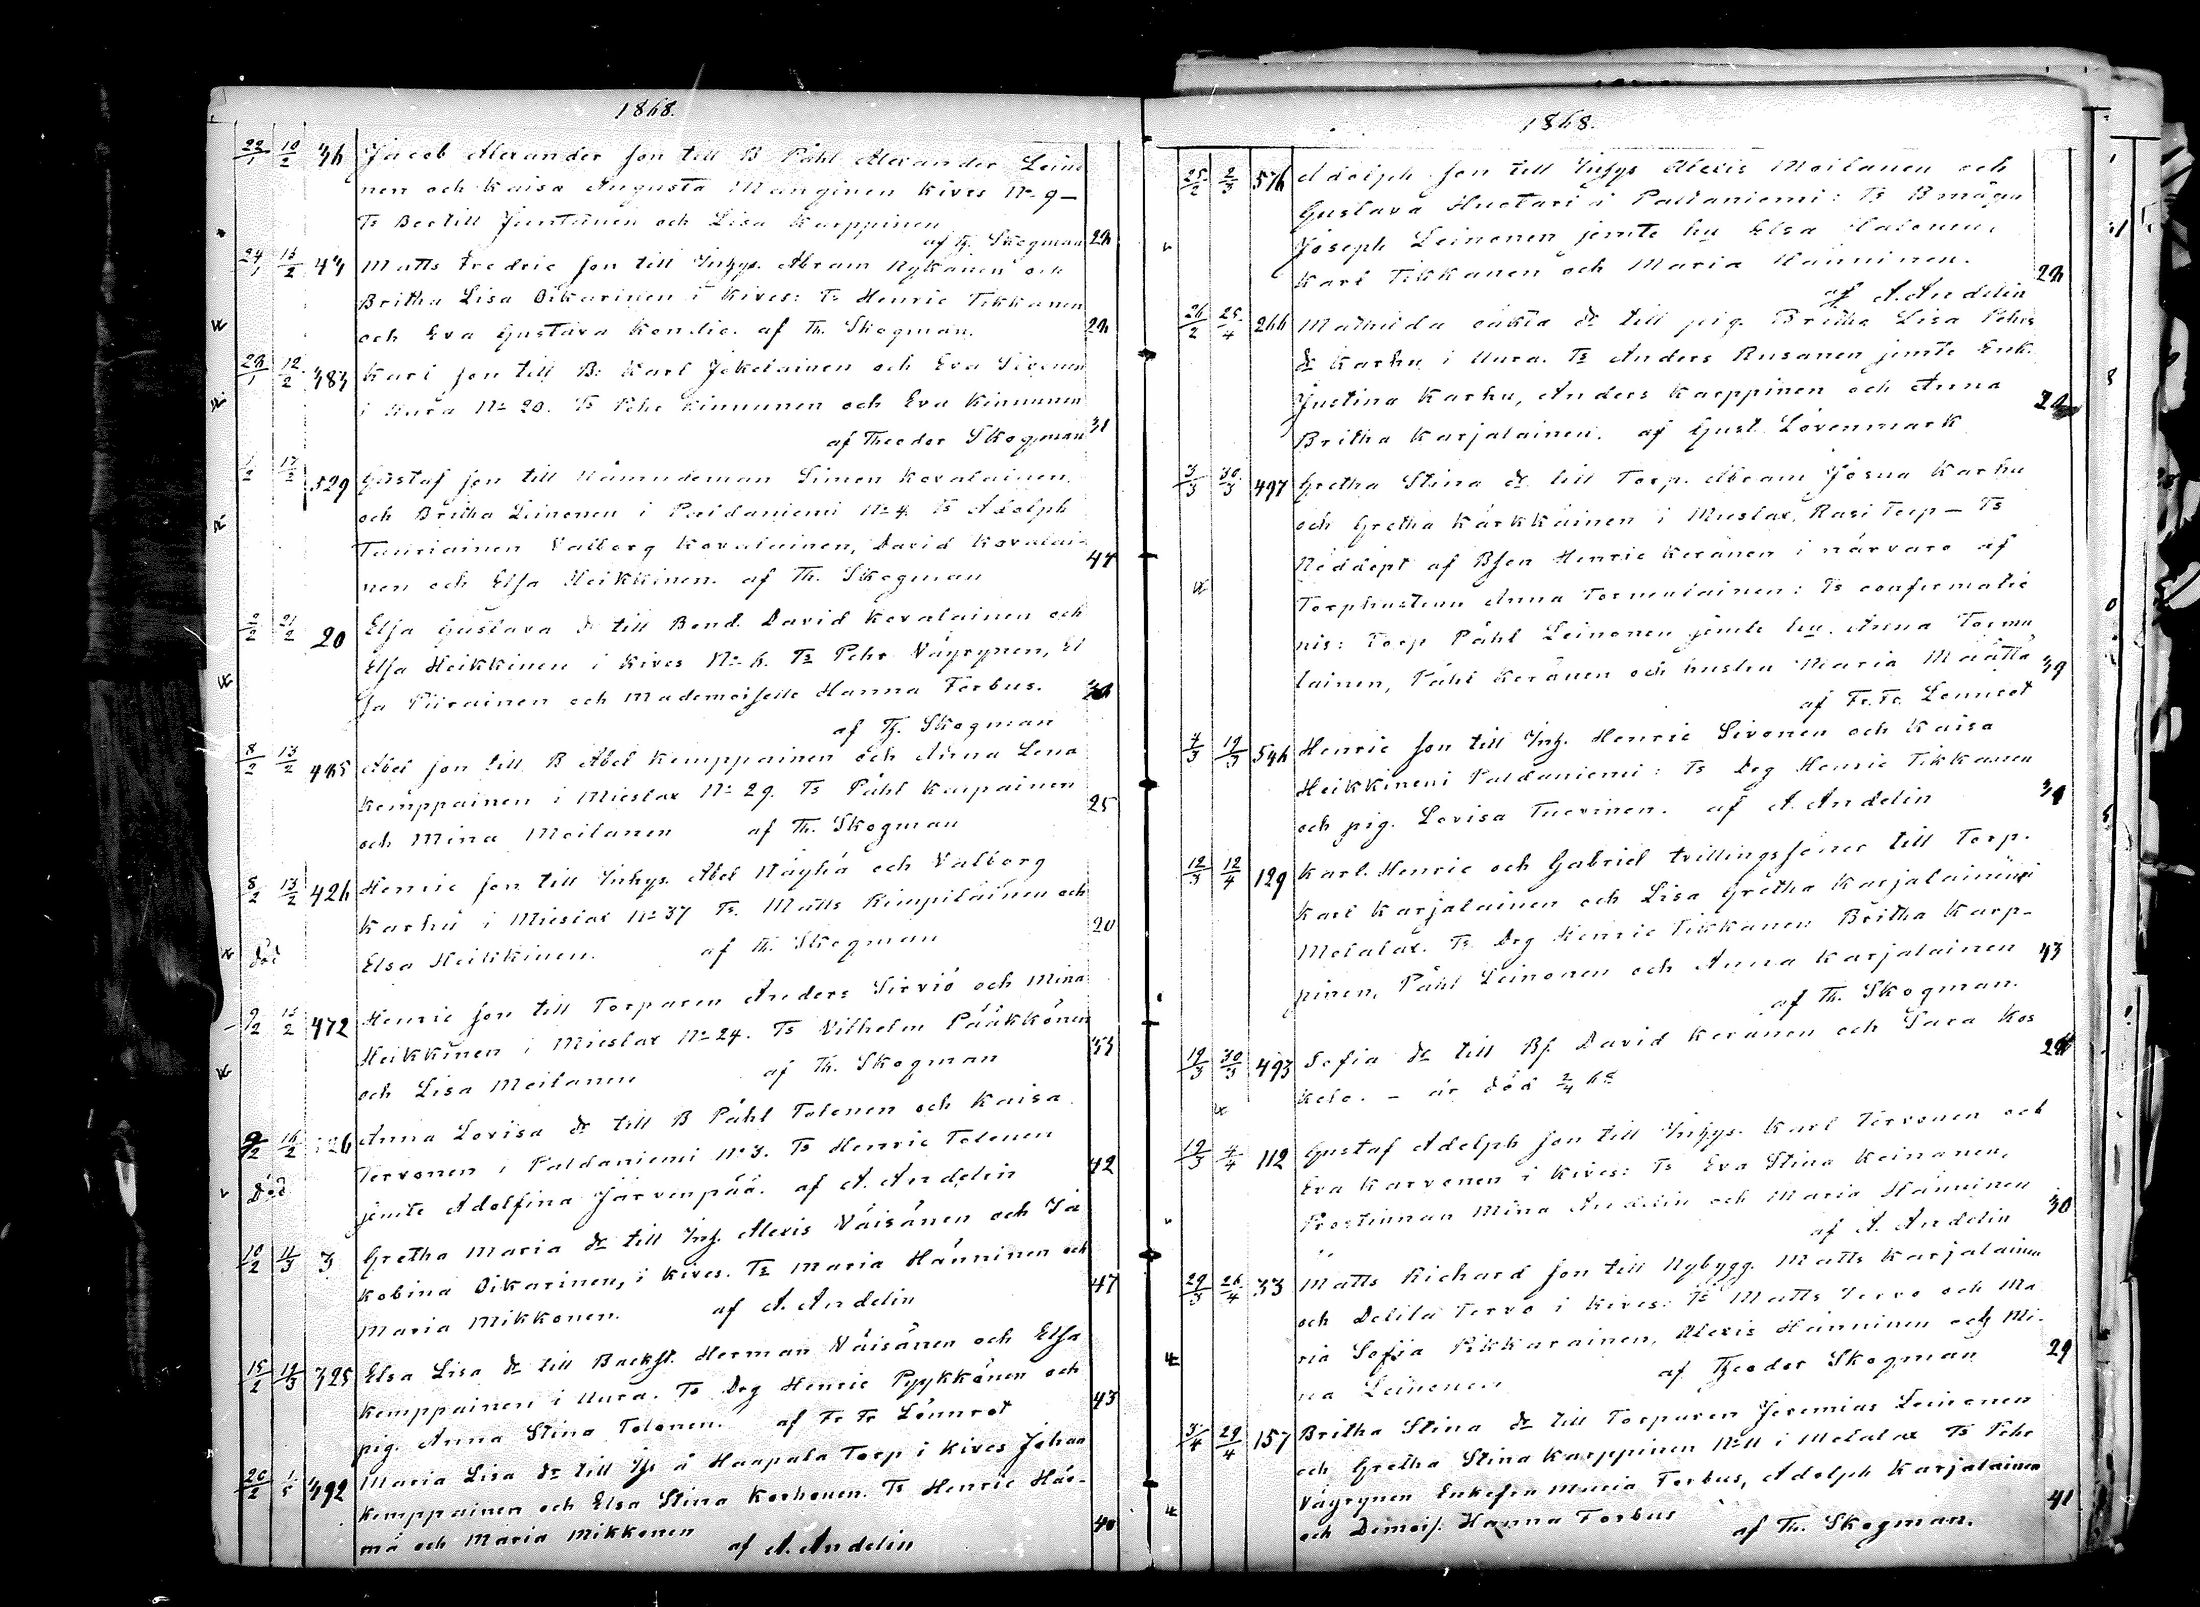 1868.
22/1 10/2 36 Jacob Alexander son till B Påhl Alexander Leino
nen och Kaisa Augusta Manginen Kives No 9 –
Ts Bertill Juntunen och Lisa Karppinen
af Th. Skogman
24/1 13/2 Matts Fredric son till Inhys. Abram Nykänen och
Britha Lisa Oikarinen i Kives: Ts Henric Tikkanen
och Eva Gustava Kondie. af Th. Skogman.
12/2 383 Karl son till B: Karl Jokelainen och Eva Sivonen
i Aura No 20. Ts Pehr Kinnunen och Eva Kinnunen
af Theodor Skogman 31
1/2 529 Gustaf son till Nämndeman Simon Kovalainen
och Britha Leinonen i Paldaniemi No 4. Ts Adolph
Tauriainen Valborg Kovalainen, David Kovalai-
nen och Elsa Heikkinen. af Th. Skogman 44
2/2 21/2 20 Elsa Gustava dr till Bond. David Kovalainen och
Elsa Heikkinen i Kives No 6. Ts Pehr Väyrynen, El
sa Piirainen och Mademoiselle Hanna Forbus.
af Th. Skogman
8/2 13/2 Abel son till B Abel Kemppainen och Anna Lena
Kemppainen i Mieslax No 29. Ts Påhl Karpainen
och Mina Moilanen af Th. Skogman 25
8/2 13/2 426 Henric son till Inhys. Abel Näyhä och Valborg
Karhu i Mieslax No 37 Ts. Matts Kimpilainen och
död Elsa Heikkinen. af Th. Skogman 20
9/2 13/2 472 Henric son till Torparen Anders Sirviö och Mina
Heikkinen i Mieslax No 24. Ts Vilhelm Pääkkönen
och Lisa Moilanen af Th. Skogman 33
9/2 16/2 Anna Lovisa dr till B Påhl Tolonen och Kaisa
Tervonen i Paldaniemi No 3. Ts Henric Tolonen
Död jemte Adolfina Järvenpää. af A. Andelin 42
10/2 11/3 3 Gretha Maria dr till Inh. Alexis Väisänen och Ja
kobina Oikarinen, i Kives. Ts Maria Hänninen och
Maria Mikkonen. af A. Andelin 47
15/2 19/3 325 Elsa Lisa dr till Backst. Herman Väisänen och Elsa
Kemppainen i Aura. Ts Drg Henric Pyykkönen och
pig. Anna Stina Tolonen. af Fr Fr Lönnrot 43
20/2 1/5 492 Maria Lisa dr till å Haapala Torp i Kives Johan
Kemppainen och Elsa Stina Korhonen. Ts Henric Här-
mä och Maria Mikkonen af A. Andelin 40
1868.
25/2 2/3 576 Adolph son till Inhys Alexis Moilanen och
Gustava Huotari i Paldaniemi: Ts B mågen
Joseph Leinonen jemte hu Elsa Halonen,
Karl Tikkanen och Maria Hänninen.
af A. Andelin
26/2 25/4 266 Mathilda oäkta dr till pig. Britha Lisa Pehrs
dr Karhu i Aura. Ts Anders Rusanen jemte Enk.
Justina Karhu, Anders Karppinen och Anna
Britha Karjalainen. af Gust. Lövenmark
3/3 30/3 497 Gretha Stina dr till Torp. Abram Josua Karhu
och Gretha Kärkkäinen i Mieslax, Rasi Torp – Ts
Nöddöpt af Bsen Henric Keränen i närvaro af
Torphustrun Anna Tornulainen: Ts confirmatio
nis: Torp Påhl Leinonen jemte hu. Anna Tornu
lainen, Påhl Keränen och hustru Maria Määttä 39
af Fr. Fr. Lönnrot
7/3 19/3 546 Henric son till Inh. Henric Sivonen och Kaisa
Heikkinen i Paldaniemi: Ts Drg Henric Tikkanen
och pig. Lovisa Tuovinen. af A. Andelin
12/3 12/4 129 Karl Henric och Gabriel tvillingssöner till Torp.
Karl Karjalainen och Lisa Gretha Karjalainen i
Melalax. Ts. Drg Henric Tikkanen Britha Karp-
pinen, Påhl Leinonen och Anna Karjalainen 43
af Th. Skogman.
19/3 30/3 493 Sofia dr till Bf. David Keränen och Sara Kos
kelo. – är död 2/4 68
19/3 4/4 112 Gustaf Adolph son till Inhys. Karl Tervonen och
Eva Karvonen i Kives: Ts Eva Stina Keinänen,
Prostinnan Mina Andelin och Maria Hänninen 30
af A. Andelin
29/3 26/4 33 Matts Richard son till Nybygg. Matts Karjalainen
och Delila Tervo i Kives: Ts Matts Tervo och Ma
ria Sofia Pikkarainen, Alexis Hänninen och Mi-
na Leinonen af Theodor Skogman 29
3/4 29/4 157 Britha Stina dr till Torparen Jeremias Leinonen
och Gretha Stina Karppinen No 11 i Melalax Ts Pehr
Väyrynen Enkefru Maria Forbus, Adolph Karjalainen
och Demois. Hanna Forbus af Th. Skogman. 41